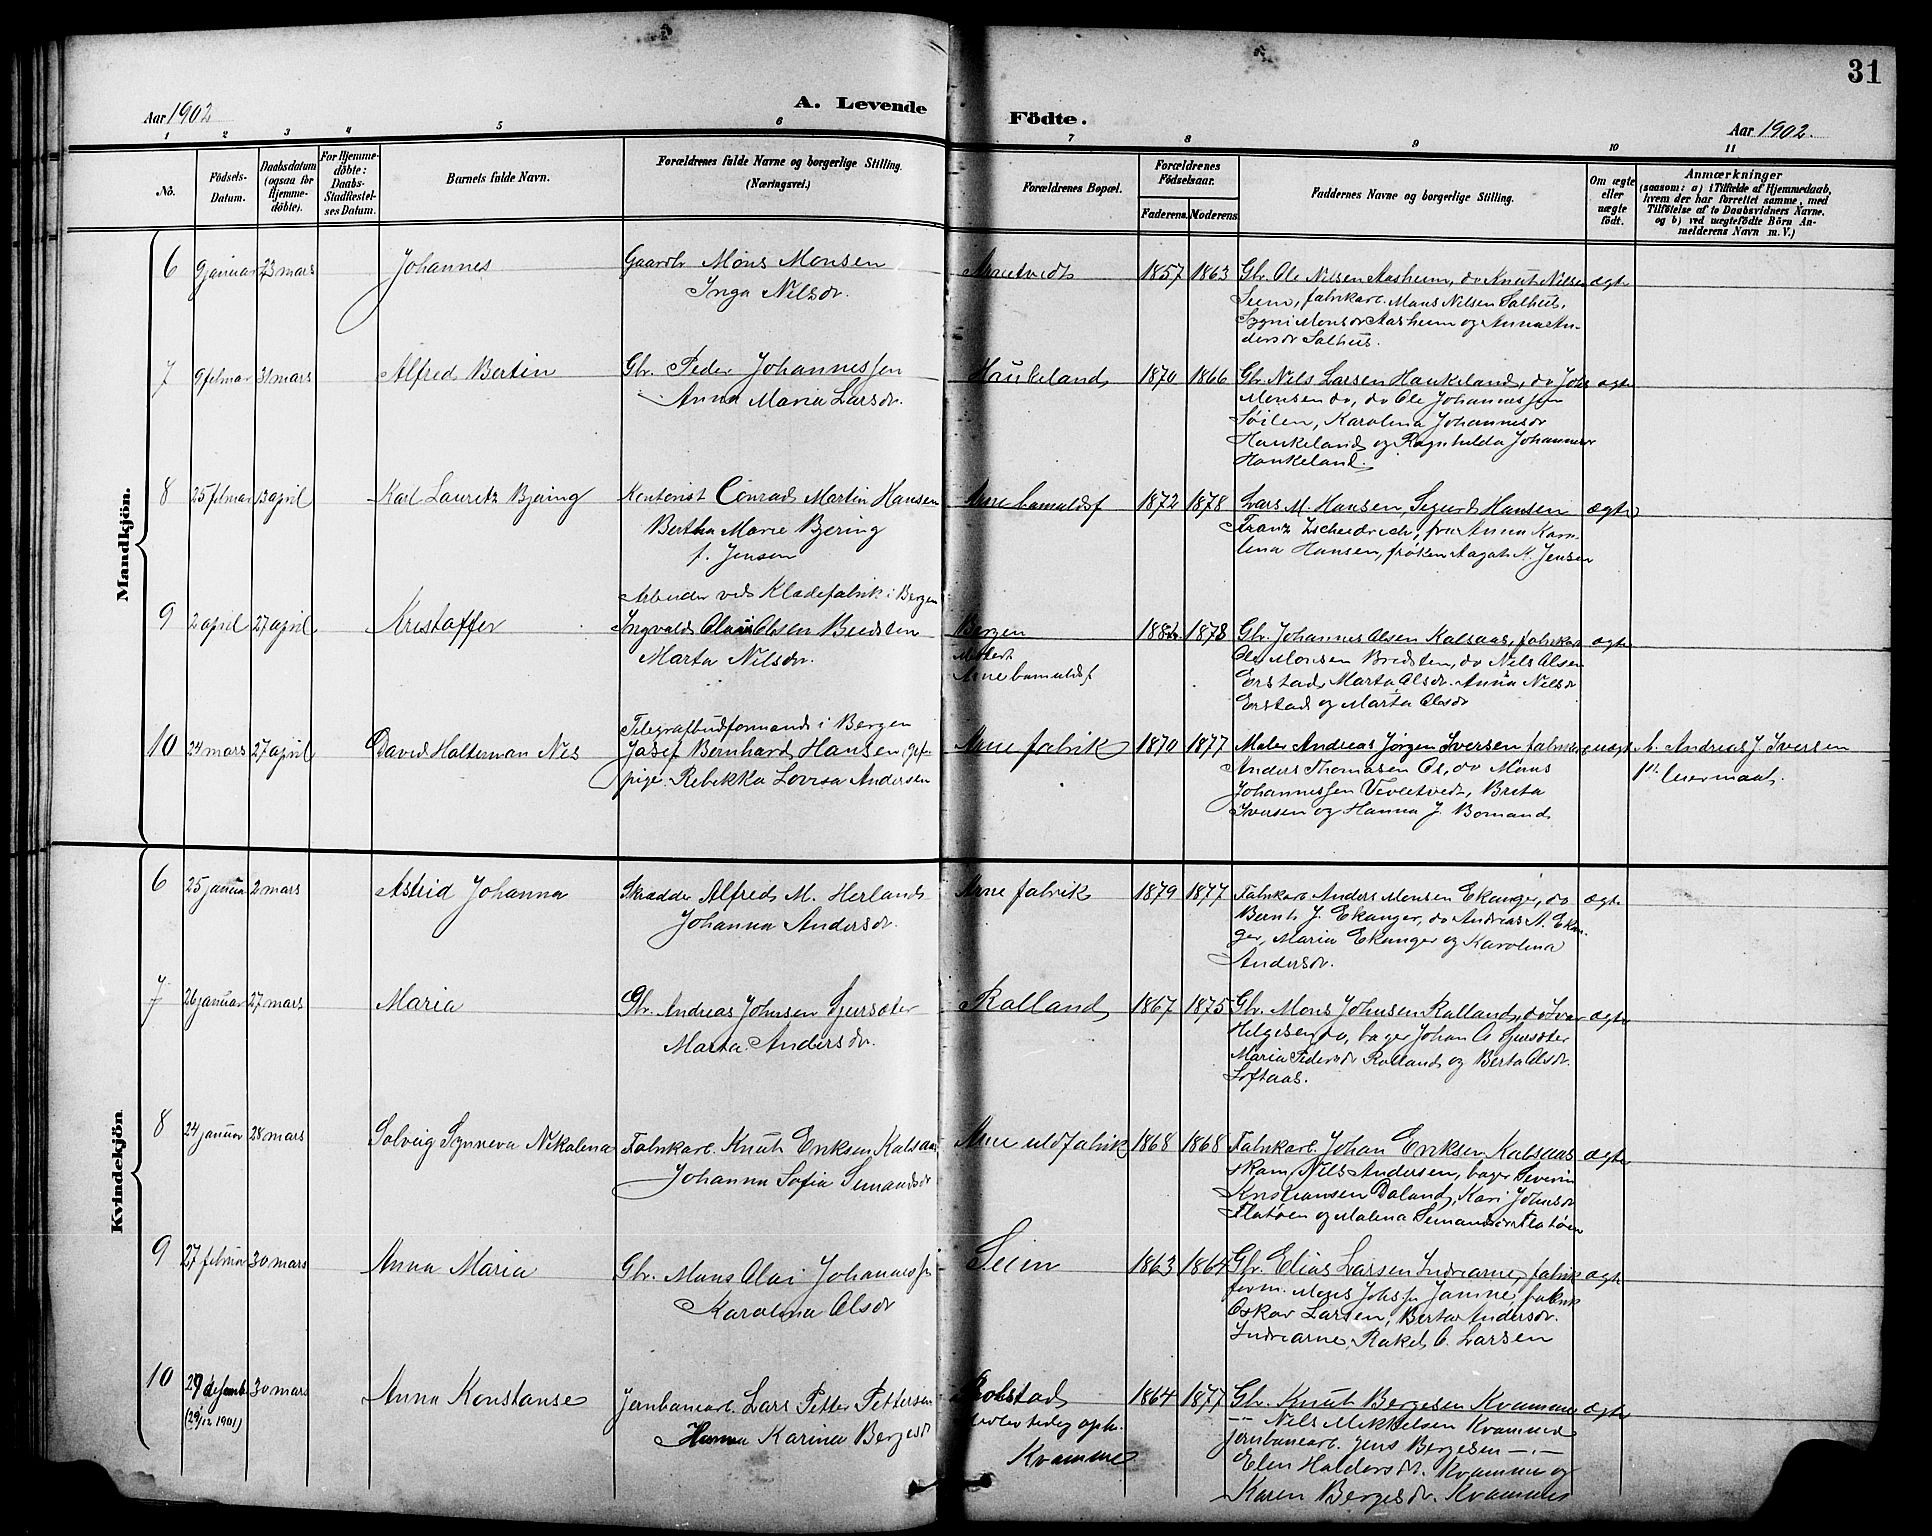 31
Aar 1902
A. Levende
Födte.
Aar 1902.
1 2 3 4 5 6 7 8 9 10 11
No.
Födsels-
Datum.
Daabsdatum
(ogsaa for
Hjemme-
döbte).
For Hjemme-
döbte:
Daabs-
Stadfæstel-
ses Datum.
Barnets fulde Navn.
Forældrenes fulde Navne og borgerlige Stilling.
(Næringsvei.)
Forældrenes Bopæl.
Forældrenes
Födselsaar.
Faderens. Moderens
Faddernes Navne og borgerlige Stilling.
Om ægte
eller
uægte
födt.
Anmærkninger
(saasom: a) i Tilfælde af Hjemmedaab,
hvem der har forrettet samme, med
Tilföielse af to Daabsvidners Navne,
og b) ved uægtefödte Börn An-
melderens Navn m. V.)
Mandkjön.
6 9 januar 23 mars Johannes
Gaardbr Mons Monsen
Inga Nilsdr.
Arnetvedt 1857 1863
Gbr. Ole Nilsen Aasheim, do Knut Nilsen
Seim, fabrikarb. Mons Nilsen Salhus,
Sygni Monsdr Aasheim og Anna An-
dersdr Salhus.
ægte
7 9 februar 31 mars Alfred Bertin
Gbr. Peder Johannessen
Anna Maria Larsdr.
Haukeland 1870 1866
Gbr. Nils Larsen Haukeland, do Johs
Monsen do, do Ole Johannessen
Søilen, Karolina Johannesdr
Haukeland og Ragnhilda Johannesdr
Haukeland.
ægte
8 25 februar 13 april Karl Lauritz Bjering
Kontorist Conrad Martin Hansen
Bertha Marie Bjering
f. Jensen
Arne bomuldsf 1872 1878
Lars M. Hansen, Sigurd Hansen
Franz Zscheidrich, fru Anna Karo-
lina Hansen, frøken Aagat M. Jensen
ægte
9 2 april 27 april Kristoffer
Arbeider ved Klædefabrik i Bergen
Ingvald Olai Olsen Bredsten
Marta Nilsdr.
Bergen
Arne bomuldsf
1878
Gbr. Johannes Olsen Kalsaas, fabrikar
Ole Monsen Bredsten, do Nils Olsen
Erstad, Marta Olsdr. Anna Nilsdr
Erstad og Marta Olsdr
ægte
10 24 mars 27 april David Halterman Nes
Telegrafbudformand i Bergen
Josef Bernhard Hansen
pige Rebekka Lovisa Andersen
Arne fabrik 1870 1877
Maler Andreas Jørgen Iversen fabrikar
Anders Thomasen do, do Mons
Johannessen Vivletvedt, Brita
Iversen og Hanna J. Bomand
uægte
A. Andreas J Iversen
1ste leiermaal.
Kvindekjön
6 25 januar 2 mars Astrid Johanna
Skrædder Alfred M. Herland
Johanna Andersdr.
Arne fabrik 1879 1877
Fabrikarb Anders Monsen Ekanger, do
Bernt J. Ekanger, do Andreas A. Ekan-
ger, Maria Ekanger og Karolina
Andersdr.
ægte
7 26 januar 27 mars Maria
Gbr. Andreas Johnsen Gjersæter
Marta Andersdr.
Rolland 1867 1875
Gbr. Mons Johnsen Rolland, do Ivar
Helgesen do, bager Johan A Gjersæter
Maria Pedersdr Rolland og Berta Olsdr.
Loftaas.
ægte
8 24 januar 28 mars Solveig Synneva Nikolena
Fabrikarb. Knut Eriksen Kalsaas
Johanna Sofia Simandsdr
Arne uldfabrik 1868 1868
Fabrikarb. Johan Eriksen Kalsaas
skom. Nils Andersen, bager Severin
Kristiansen Daland, Kari Johnsdr
Flatøen og Malena Simandsdr Flatøen
ægte
9 27 februar 30 mars Anna Maria
Gbr. Mons Olai Johannessen
Karolina Olsdr
Seim 1863 1864
Gbr. Elias Larsen Indrearne, fabrik
form. Mons Johssen Janne, fabrik
Oskar Larsen, Berta Andersdr.
Indrearne, Rakel O. Larsen
ægte
10 29 desemb. 30 mars Anna Konstanse
(29/12 1901)
Jernbanearb. Lars Petter Pettersen
Hanna Karina Bergesdr
Rolstad
midlertidig oph.
Kvamme
1864 1877
Gbr. Knut Bergesen Kvamme
-"- Nils Mikkelsen Kvamme
jernbanearb. Jens Bergesen -"-
Elen Haldorsdr. Kvamme og
Karen Bergesdr. Kvamme
ægte